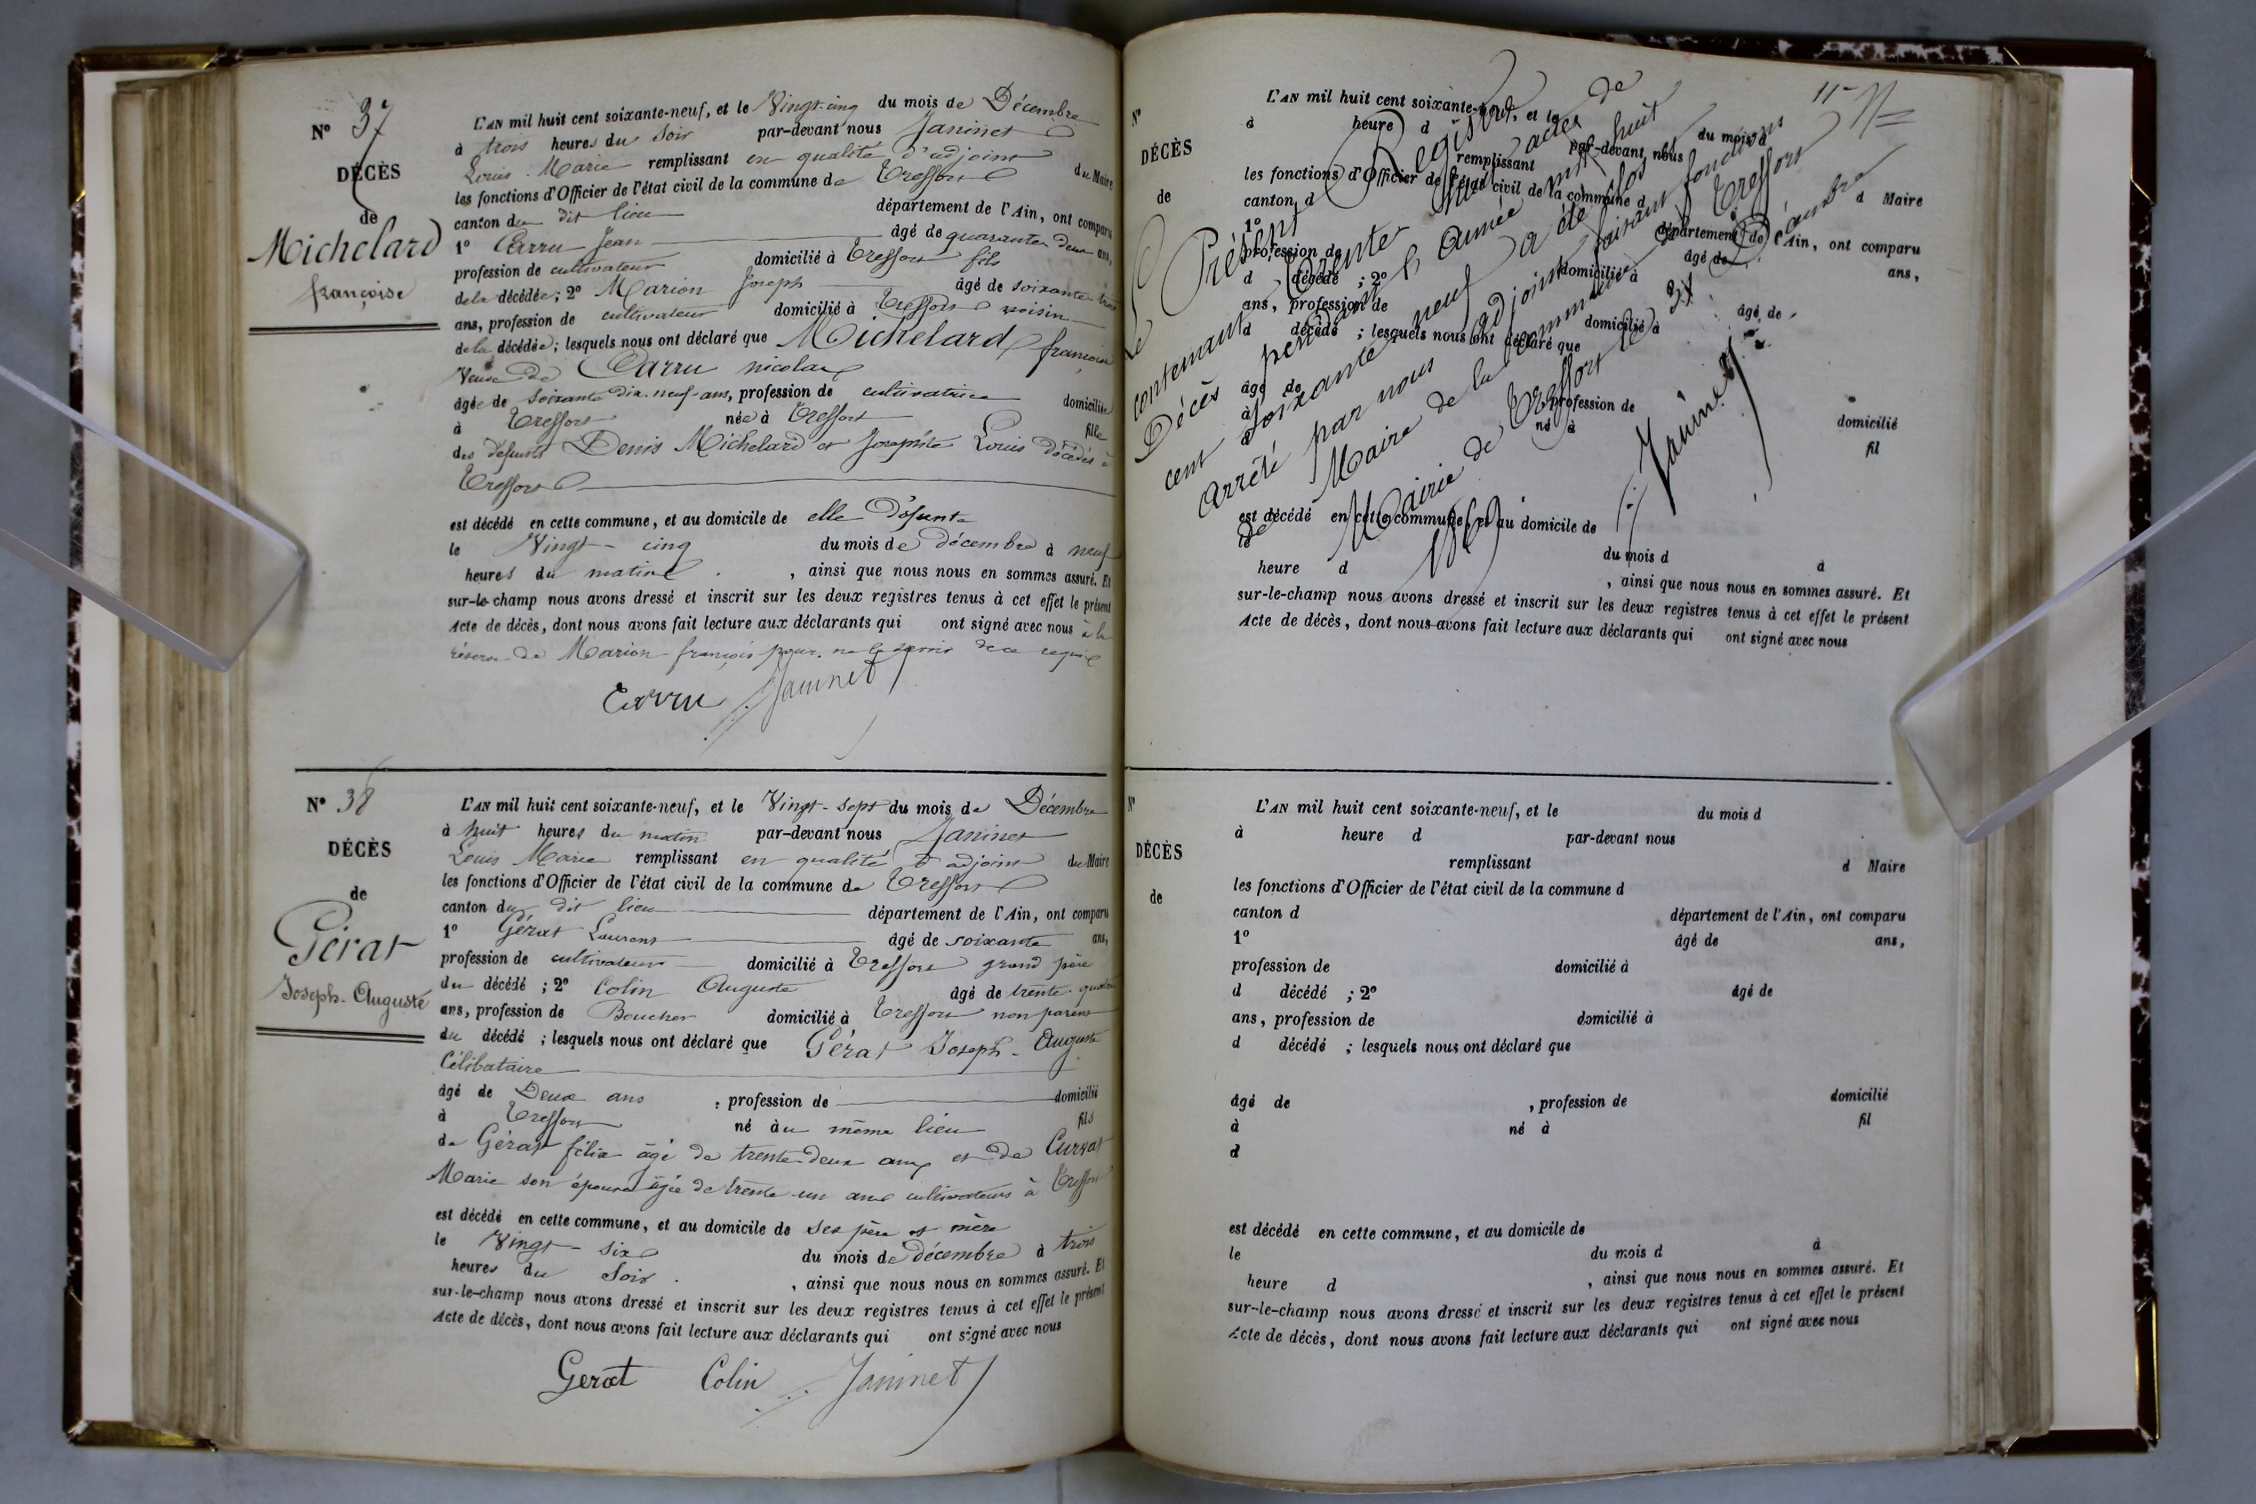 N° 37
DÉCÈS
de
Michelard
françoise
L'AN mil huit cent soixante-neuf, et le Vingt-cinq du mois de Décembre
à trois heures du soir par-devant nous Janinet
Louis Marie remplissant en qualité d'adjoint du Maire
les fonctions d'Officier de l'état civil de la commune de Treffort
canton du dit lieu département de l'Ain, ont comparu
1° Carru Jean âgé de quarante deux ans,
profession de cultivateur domicilié à Treffort fils
de la décédée; 2° Marion Joseph âgé de soixante trois
ans, profession de cultivateur domicilié à Treffort voisin
de la décédée; lesquels nous ont déclaré que Michelard françoise
Veuve de Carru nicolas
âgée de soixante dix-neuf ans, profession de cultivatrice domiciliée
à Treffort née à Treffort fille
des défunts Denis Michelard et Josephte Louis décédés à
Treffort
est décédé en cette commune, et au domicile de elle défunte
le Vingt-cinq du mois de décembre à neuf
heures du matin, ainsi que nous nous en sommes assuré. Et
sur-le-champ nous avons dressé et inscrit sur les deux registres tenus à cet effet le présent
Acte de décès, dont nous avons fait lecture aux déclarants qui ont signé avec nous à la
réserve de Marion françois pour ne le savoir de ce requis
Carru Janinet
N° 38
DÉCÈS
de
Gérat
Joseph-Auguste
L'AN mil huit cent soixante-neuf, et le Vingt-sept du mois de Décembre
à huit heures du matin par-devant nous Janinet
Louis Marie remplissant en qualité d'adjoint du Maire
les fonctions d'Officier de l'état civil de la commune de Treffort
canton du dit lieu département de l'Ain, ont comparu
1° Gérat Laurent âgé de soixante ans,
profession de cultivateur domicilié à Treffort grand père
du décédé; 2° Colin Auguste âgé de trente quatre
ans, profession de Boucher domicilié à Treffort non parent
du décédé; lesquels nous ont déclaré que Gérat Joseph-Auguste
Célibataire
âgé de Deux ans, profession de domicilié
à Treffort né au même lieu fils
de Gérat félix âgé de trente deux ans et de Curvat
Marie son épouse âgée de trente un ans cultivateurs à Treffort
est décédé en cette commune, et au domicile de ses père et mère
le Vingt-six du mois de décembre à trois
heures du soir, ainsi que nous nous en sommes assuré. Et
sur-le-champ nous avons dressé et inscrit sur les deux registres tenus à cet effet le présent
Acte de décès, dont nous avons fait lecture aux déclarants qui ont signé avec nous
Gerat Colin Janinet
N°
DÉCÈS
de
L'AN mil huit cent soixante-neuf, et le du mois d
à heure d par-devant nous
remplissant d Maire
les fonctions d'Officier de l'état civil de la commune d
canton d département de l'Ain, ont comparu
1° âgé de ans,
profession de domicilié à
d décédé ; 2° âgé de
ans, profession de domicilié à
d décédé ; lesquels nous ont déclaré que
âgé de profession de domicilié
à né à fil
d
est décédé en cette commune, et au domicile de
du mois d à
heure d , ainsi que nous nous en sommes assuré. Et
sur-le-champ nous avons dressé et inscrit sur les deux registres tenus à cet effet le présent
Acte de décès, dont nous avons fait lecture aux déclarants qui ont signé avec nous
Le Présent Registre
contenant trente huit actes de
Décès pendant l'année mil huit
cent soixante neuf a été clos et
arrêté par nous adjoint faisant fonctions
de Maire de la commune de Treffort
Mairie de Treffort le 31 Décembre
1869
Janinet
N°
DÉCÈS
de
L'AN mil huit cent soixante-neuf, et le du mois d
à heure d par-devant nous
remplissant d Maire
les fonctions d'Officier de l'état civil de la commune d
canton d département de l'Ain, ont comparu
1° âgé de ans,
profession de domicilié à
d décédé ; 2° âgé de
ans, profession de domicilié à
d décédé ; lesquels nous ont déclaré que
âgé de , profession de domicilié
à né à fil
d
est décédé en cette commune, et au domicile de
le du mois d à
heure d , ainsi que nous nous en sommes assuré. Et
sur-le-champ nous avons dressé et inscrit sur les deux registres tenus à cet effet le présent
Acte de décès, dont nous avons fait lecture aux déclarants qui ont signé avec nous